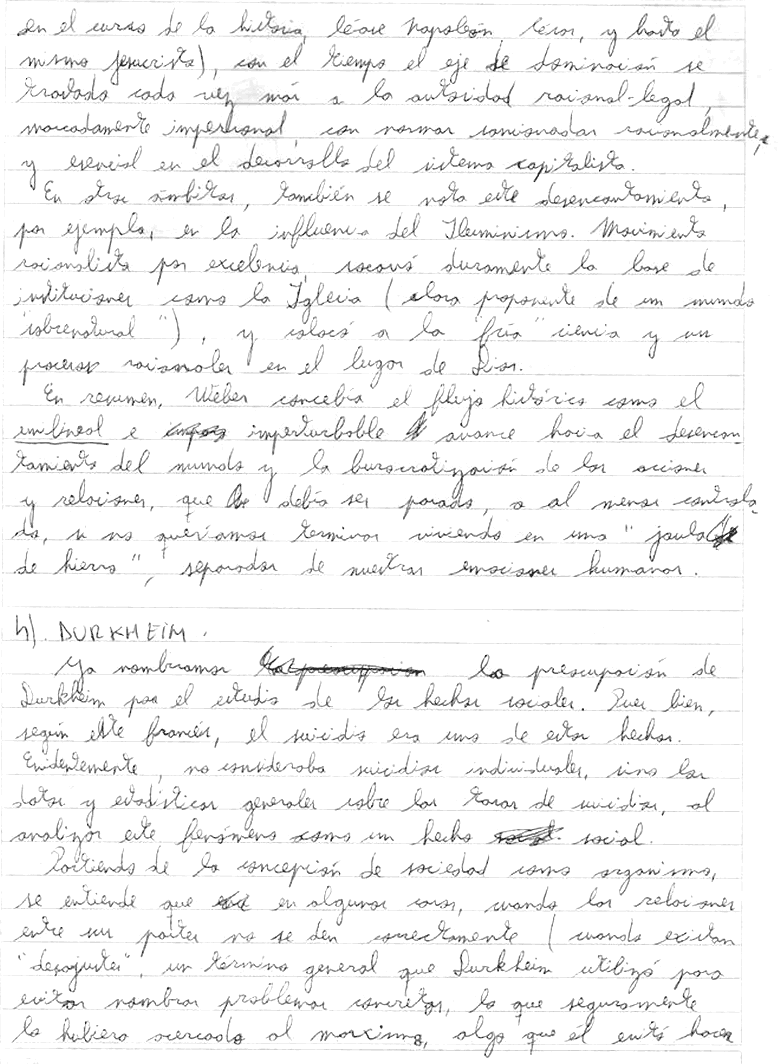 en el curso de la historia, léase Napoleón, César, y hasta el
mismo Jesucristo), con el tiempo el eje de dominación se
traslada cada vez más a la autoridad racional-legal,
marcadamente impersonal, con normas sancionadas racionalmente,
y esencial en el desarrollo del sistema capitalista.
En otros ámbitos, también se nota este desencantamiento,
por ejemplo, en la influencia del Iluminismo. Movimiento
racionalista por excelencia, socavó duramente la base de
instituciones como la Iglesia (clara proponente de un mundo
"sobrenatural"), y colocó a la "fría" ciencia y sus
procesos racionales en el lugar de Dios.
En resumen, Weber concebía el flujo histórico como el
unilineal e imperturbable avance hacia el desencan-
tamiento del mundo y la burocratización de las acciones
y relaciones, que debía ser parado, o al menos controla-
do, si no queríamos terminar viviendo en una "jaula
de hierro", separados de nuestras emociones humanas.
4). DURKHEIM.
Ya nombramos la preocupación de
Durkheim por el estudio de los hechos sociales. Pues bien,
según este francés, el suicidio era uno de estos hechos.
Evidentemente, no consideraba suicidios individuales, sino los
datos y estadísticas generales sobre las tasas de suicidios, al
analizar este fenómeno como un hecho social.
Partiendo de la concepción de sociedad como organismo,
se entiende que en algunos casos, cuando las relaciones
entre sus partes no se den correctamente (cuando existan
"desajustes", un término general que Durkheim utilizó para
evitar nombrar problemas concretos, lo que seguramente
lo hubiera acercado al marxismo, algo que él evitó hacer